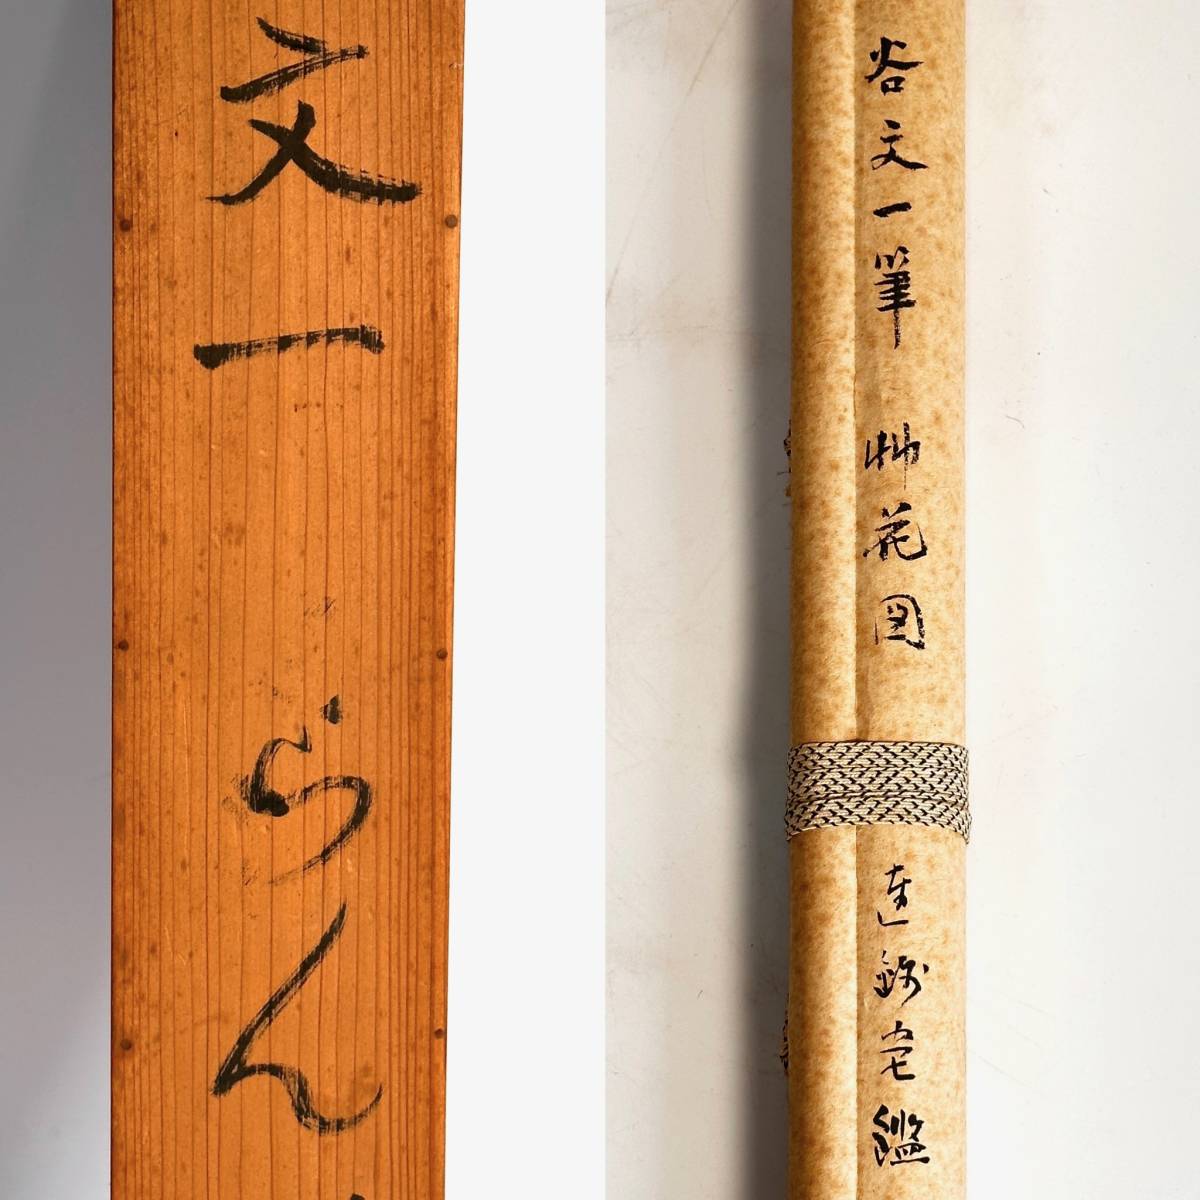 文一 らん
谷文一筆 艸花図
達磨宅鑑